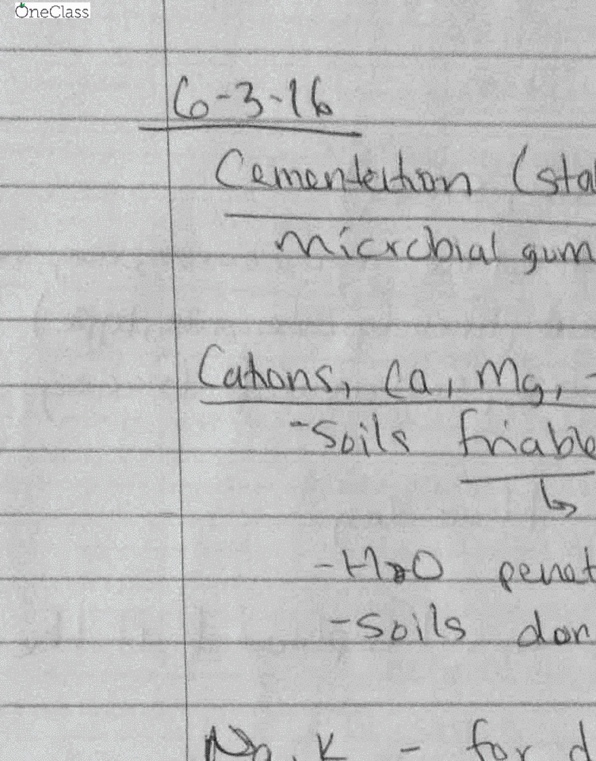 OneClass
6-3-16
Cementation (sta
microbial gum
Cations, Ca, Mg, -
-Soils friable
↳
-H2O penet
-Soils don
Na, K - for d